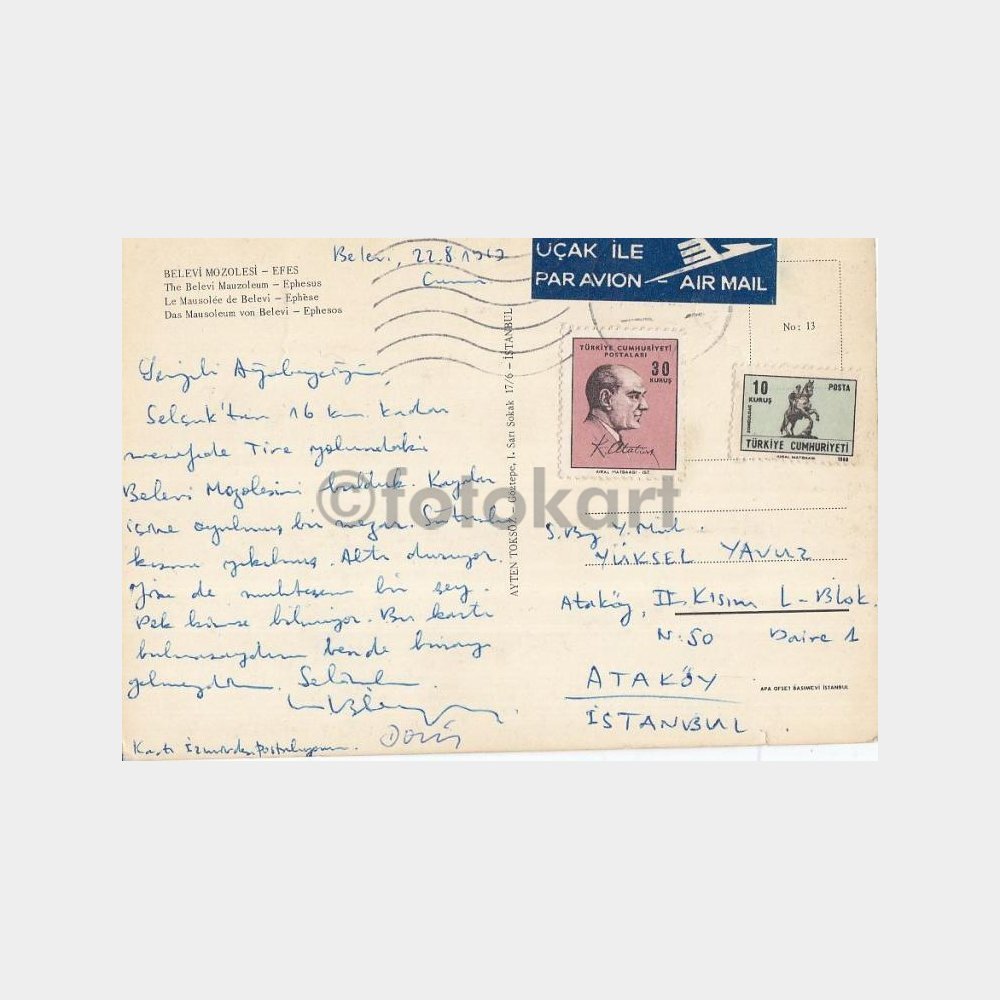 BELEVİ MOZOLESİ – EFES
The Belevi Mauzoleum – Ephesus
Le Mausolée de Belevi – Ephèse
Das Mausoleum von Belevi – Ephesos
Belevi, 22.8.19
Cuma
UÇAK İLE
PAR AVION – AIR MAIL
No: 13
TÜRKİYE CUMHURİYETİ
POSTALARI
30
KURUŞ
K. Atatürk
10
KURUŞ
POSTA
TÜRKİYE CUMHURİYETİ
Sevgili Ağabeyciğim,
Selçuk'tan 16 km. kadar
mesafede Tire yolundaki
Belevi Mozolesini bulduk. Kayalar
içine oyulmuş bir mezar.
kısmı yıkılmış. Altı duruyor.
Yine de muhteşem bir şey.
Pek kimse bilmiyor. Bu kartı
bulmasaydım ben de buraya
gelmezdim. Selâmlar.
DORİS
Kartı İzmirden postalıyorum.
AYTEN TOKSÖZ, Göztepe, 1. Sarı Sokak 17/6 – İSTANBUL
S. By Y. Müh.
YÜKSEL YAVUZ
Ataköy, II. Kısım L-Blok.
N: 50 Daire 1
ATAKÖY
İSTANBUL.
APA OFSET BASIMEVİ İSTANBUL
©fotokart